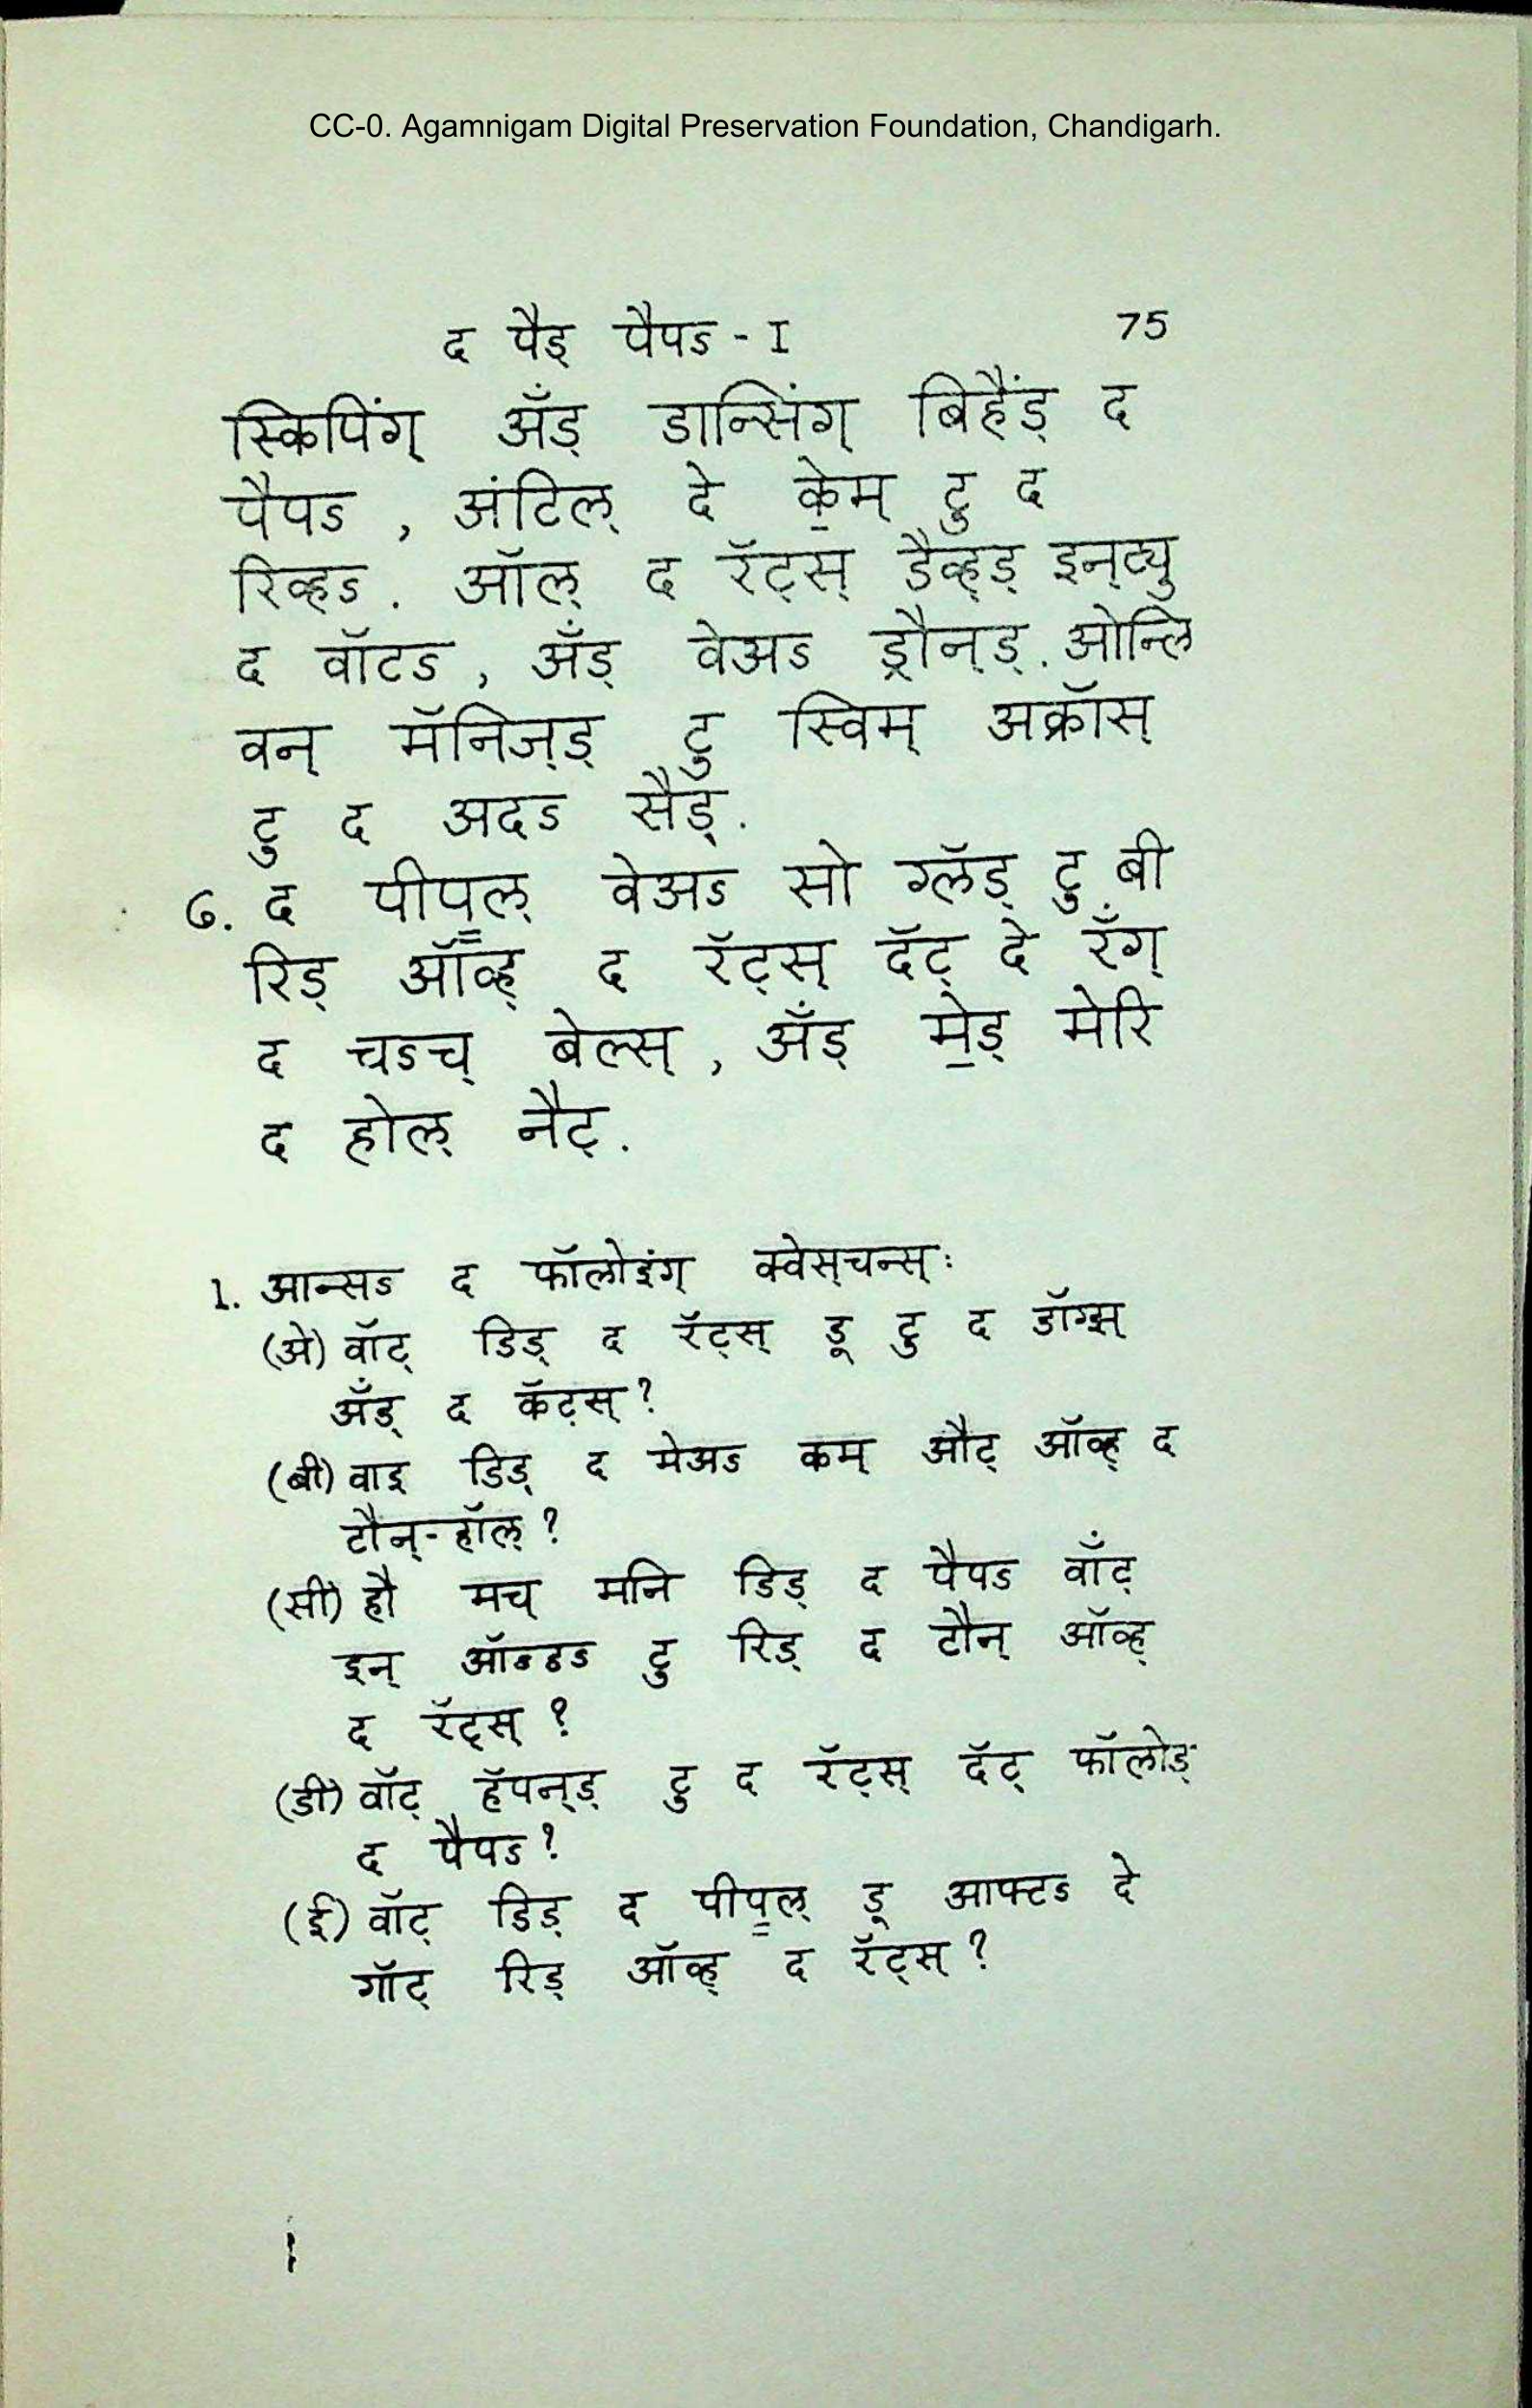 CC-0. Agamnigam Digital Preservation Foundation, Chandigarh.
द पैड् पैपऽ - I 75
स्किपिंग् अँड् डान्सिंग् बिहैंड् द
पैपऽ , अंटिल् दे के॒म् टु द
रिव्हऽ . ऑल् द रॅट्स् डैव्ह्ड् इन्ट्यु
द वॉटऽ , अँड् वेअऽ ड्रौन्ड् . ओन्लि
वन् मॅनिज्ड् टु स्विम् अक्रॉस्
टु द अदऽ सैड् .
6. द पीप॒ल् वेअऽ सो ग्लॅड् टु बी
रिड् ऑव्ह् द रॅट्स् दॅट् दे रँग्
द चऽच् बेल्स् , अँड् मे॒ड् मेरि
द होल् नैट् .
1. आन्सऽ द फॉलोइंग् क्वेस्चन्स् :
(अे) वॉट् डिड् द रॅट्स् डू टु द डॉग्झ्
अँड् द कॅट्स् ?
(बी) वाइ डिड् द मेअऽ कम् औट् ऑव्ह् द
टौन्-हॉल् ?
(सी) हौ मच् मनि डिड् द पैपऽ वाँट्
इन् ऑऽडऽ टु रिड् द टौन् ऑव्ह्
द रॅट्स् ?
(डी) वॉट् हॅपन्ड् टु द रॅट्स् दॅट् फॉलोड्
द पैपऽ ?
(ई) वॉट् डिड् द पीप॒ल् डू आफ्टऽ दे
गॉट् रिड् ऑव्ह् द रॅट्स् ?